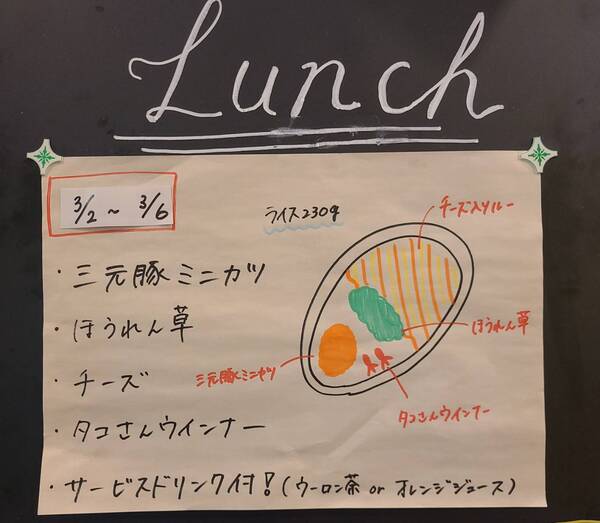 Lunch
3/2 ~ 3/6
ライス230g
チーズ入りルー
・三元豚ミニカツ
・ほうれん草
ほうれん草
・チーズ
三元豚ミニカツ
タコさんウインナー
・タコさんウインナー
・サービスドリンク付!(ウーロン茶 or オレンジジュース)